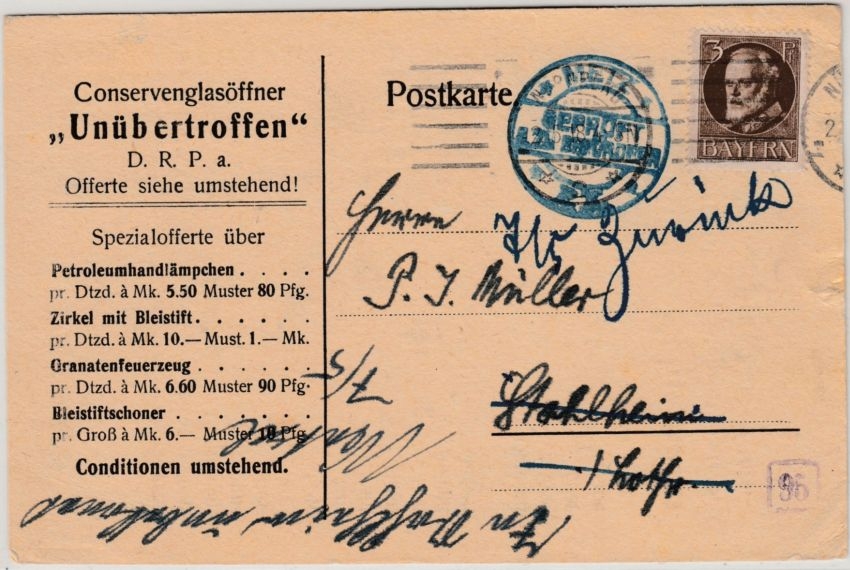 Conservenglasöffner
„Unübertroffen“
D. R. P. a.
Offerte siehe umstehend!
Spezialofferte über
Petroleumhandlämpchen . . . .
pr. Dtzd. à Mk. 5.50 Muster 80 Pfg.
Zirkel mit Bleistift . . . . . .
pr. Dtzd. à Mk. 10.— Must. 1.— Mk.
Granatenfeuerzeug . . . . . .
pr. Dtzd. à Mk. 6.60 Muster 90 Pfg.
Bleistiftschoner . . . . . . .
pr. Groß à Mk. 6.— Muster 10 Pfg.
Conditionen umstehend.
Postkarte.
3 Pf
BAYERN
METZ
GEPRÜFT
Herrn
Zurück
P. J. Müller
Stahlheim
i Lothr.
7/5
In Stahlheim unbekannt
96